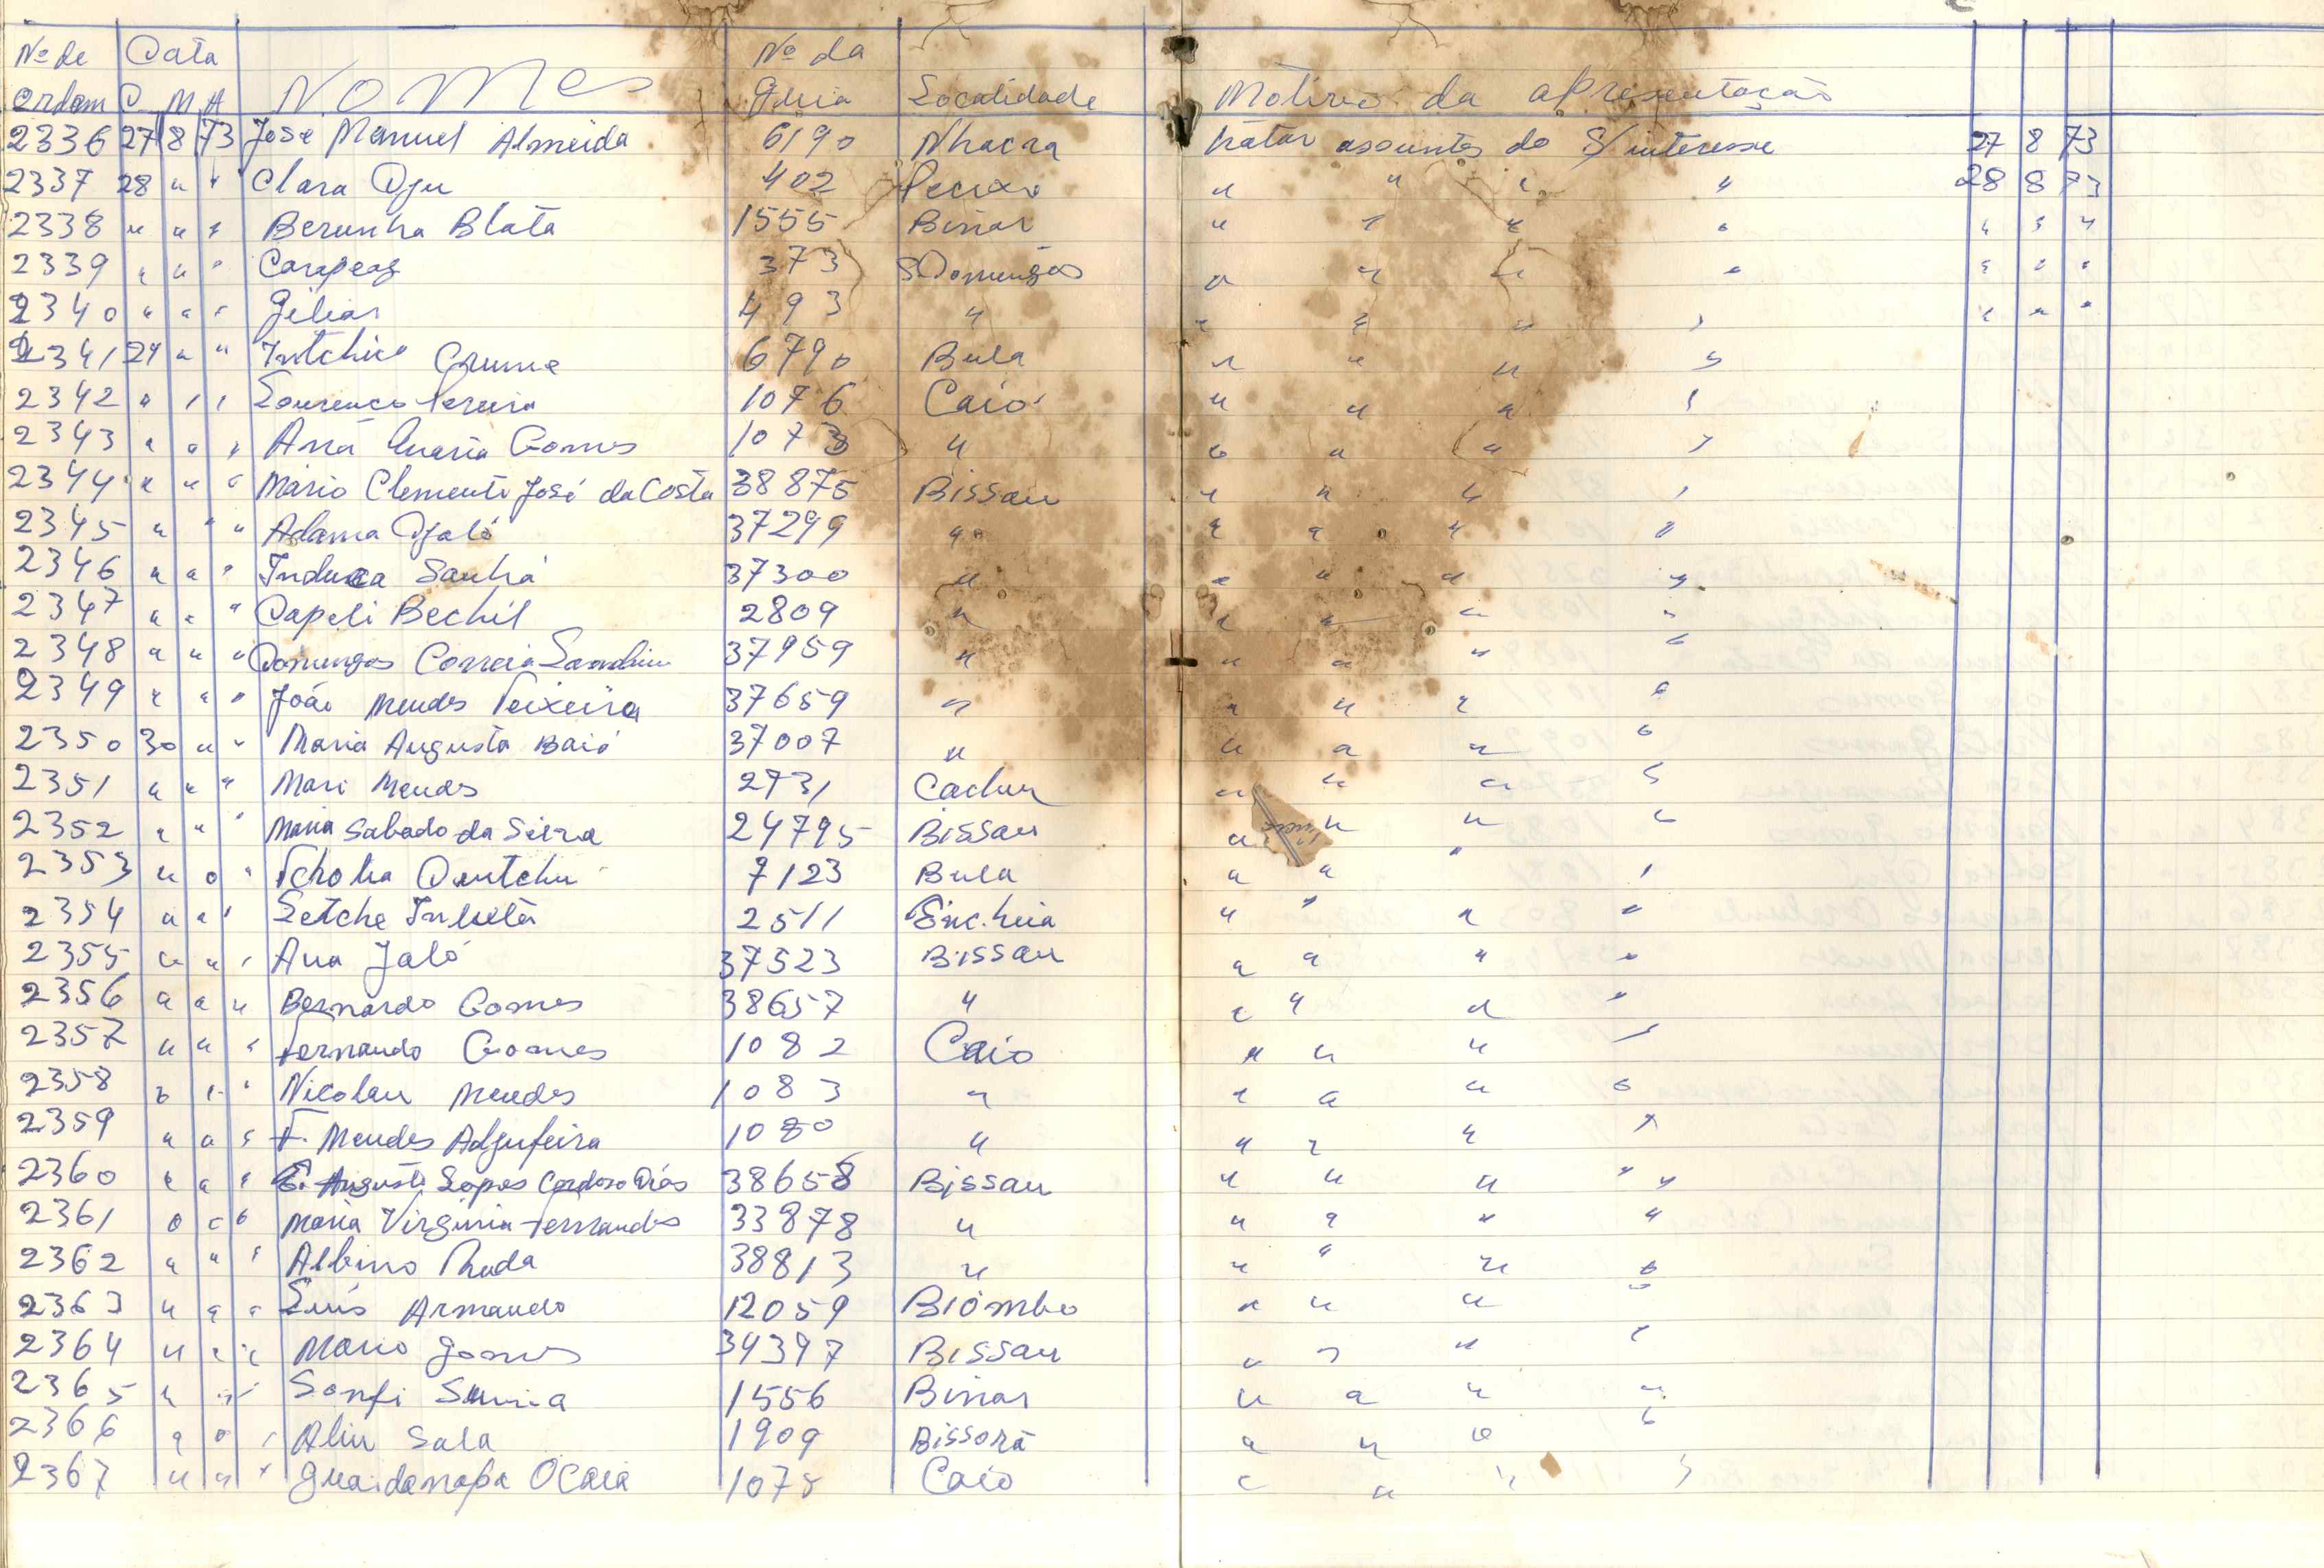 Nº de Data Nº da
Ordem D M A Nomes Guia Localidade Motivo da apresentação
2336 27 8 73 Jose Manuel Almeida 6190 Nhacra tratar assuntos do S/ interesse 27 8 73
2337 28 " " Clara Dju 402 Pecixe " " " " 28 8 73
2338 " " " Berunha Blata 1555 Binar " " " " " " "
2339 " " " 373 S Domingos " " " " " " "
2340 " " " 493 " " " " " " " "
2341 29 " " Intchico 6790 Bula " " " "
2342 " " " Lourenço Pereira 1076 Caió " " " "
2343 " " " Ana Maria Gomes 1073 " " " " "
2344 " " " Mario Clemente José da Costa 38875 Bissau " " " "
2345 " " " Adama Djaló 37299 " " " " "
2346 " " " Induca Sanhá 37300 " " " " "
2347 " " " Capeli Bechil 2809 " " " " "
2348 " " " Domingos Correia 37959 " " " " "
2349 " " " João Mendes Teixeira 37659 " " " " "
2350 30 " " Maria Augusta Baió 37007 " " " " "
2351 " " " Mari Mendes 2731 " " " "
2352 " " " Maria Sabado da Silva 24795 Bissau " " " "
2353 " " " 7123 Bula " " " "
2354 " " " Letche 2511 " " " "
2355 " " " Ana Jaló 37523 Bissau " " " "
2356 " " " Bernardo Gomes 38657 " " " " "
2357 " " " Fernando Gomes 1082 Caio " " " "
2358 " " " Nicolau Mendes 1083 " " " " "
2359 " " " F. Mendes Adjufeira 1080 " " " " "
2360 " " " E. Augusta Lopes Cardoso Dias 38658 Bissau " " " "
2361 " " " Maria Virginia Fernandes 33878 " " " " "
2362 " " " Albino 38813 " " " " "
2363 " " " Luís Armando 12059 Biombo " " " "
2364 " " " Mario Gomes 34397 Bissau " " " "
2365 " " " Sonfi 1556 Binar " " " "
2366 " " " Aliu Sala 1909 Bissorã " " " "
2367 " " " Ocaia 1078 Caio " " " "